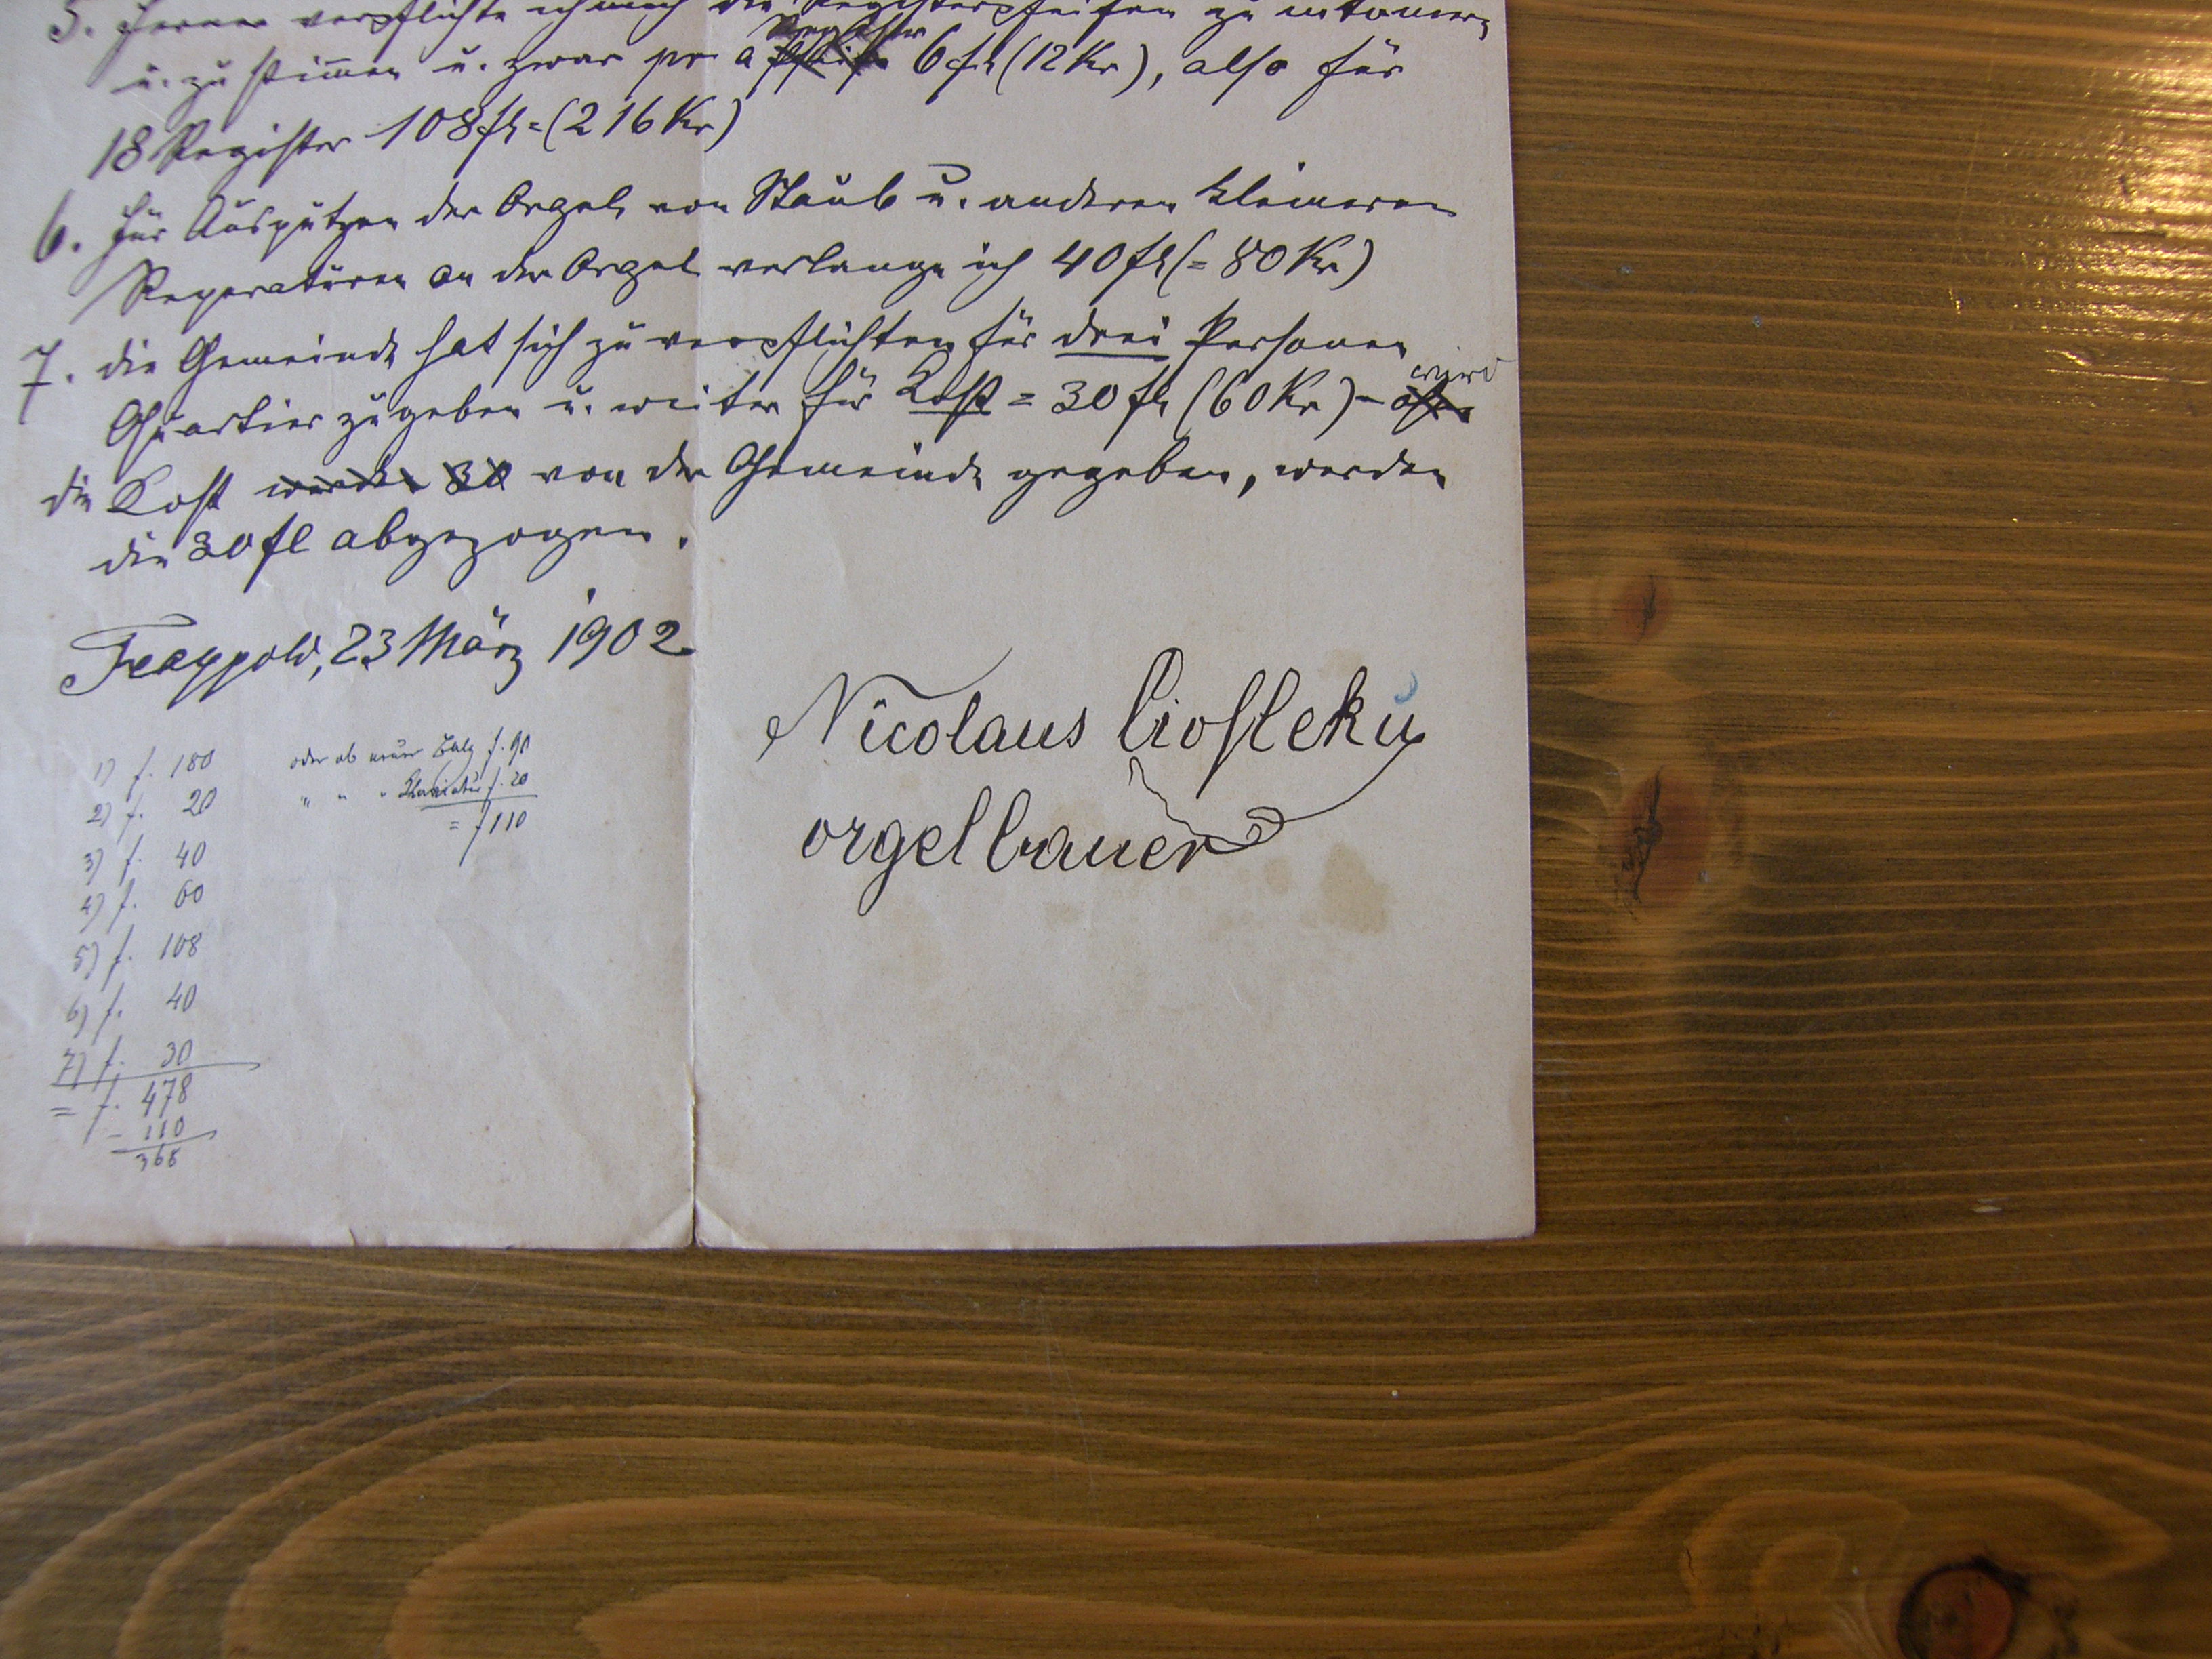 5. Ferner verpflichte ich mich die Registerpfeifen zu intonieren
u. zu stimmen u. zwar pr a Register 6 fl (12 Kr), also für
18 Register 108 fl = (216 Kr)
6. Für Ausputzen der Orgel von Staub u. anderen kleineren
Reperaturen an der Orgel verlange ich 40 fl (= 80 Kr)
7. die Gemeinde hat sich zu verpflichten für drei Personen
Quartier zu geben u. weiter für Kost = 30 fl (60 Kr) - wird
die Kost werden 30 von der Gemeinde gegeben, werden
die 30 fl abgezogen.
Trappold, 23 März 1902
Nicolaus Ciofleku
orgelbauer
1) f. 180
2) f. 20
3) f. 40
4) f. 60
5) f. 108
6) f. 40
7) f. 30
= f. 478
- 110
368
oder ab neuer Balg f. 90
" " " Klaviatur f. 20
= f 110